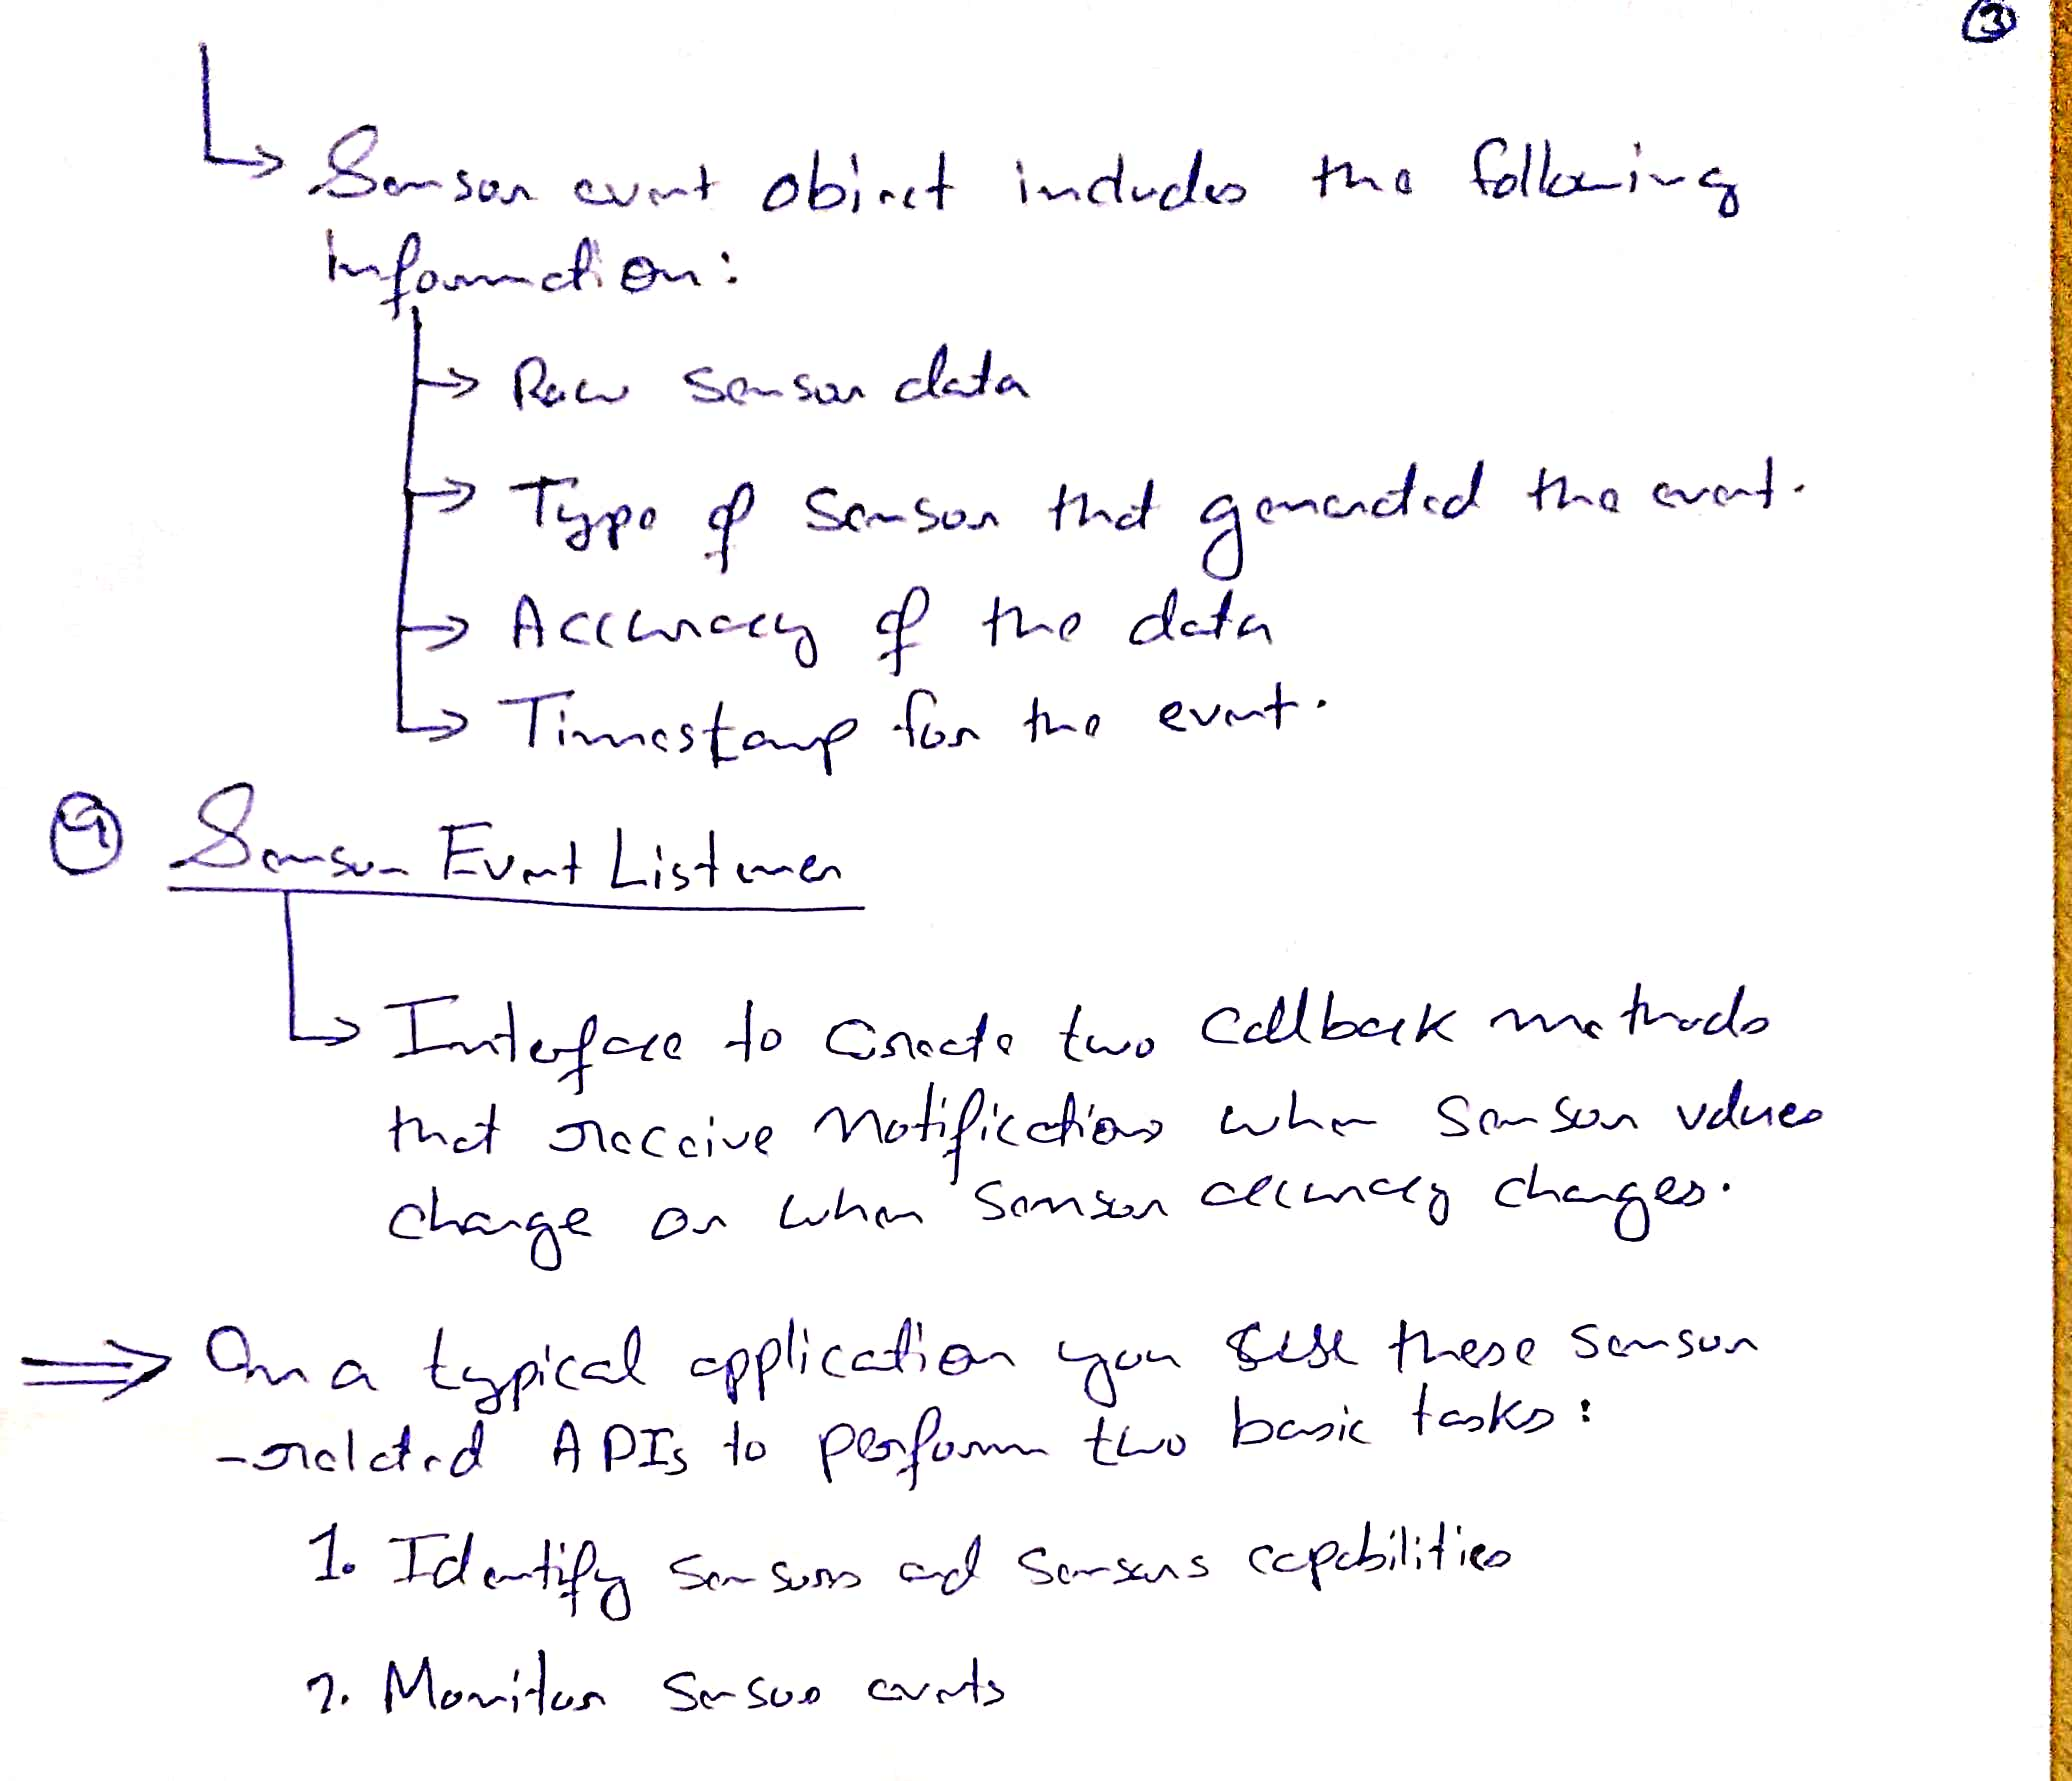 ③
Sensor event object includes the following
Information:
Raw sensor data
Type of sensor that generated the event.
Accuracy of the data
Timestamp for the event.
④ Sensor Event Listener
Interface to create two callback methods
that receive notifications when sensor values
change or when sensor accuracy changes.
⇒ On a typical application you use these sensor
-related APIs to perform two basic tasks:
1. Identify sensors and sensors capabilities
2. Monitor sensor events